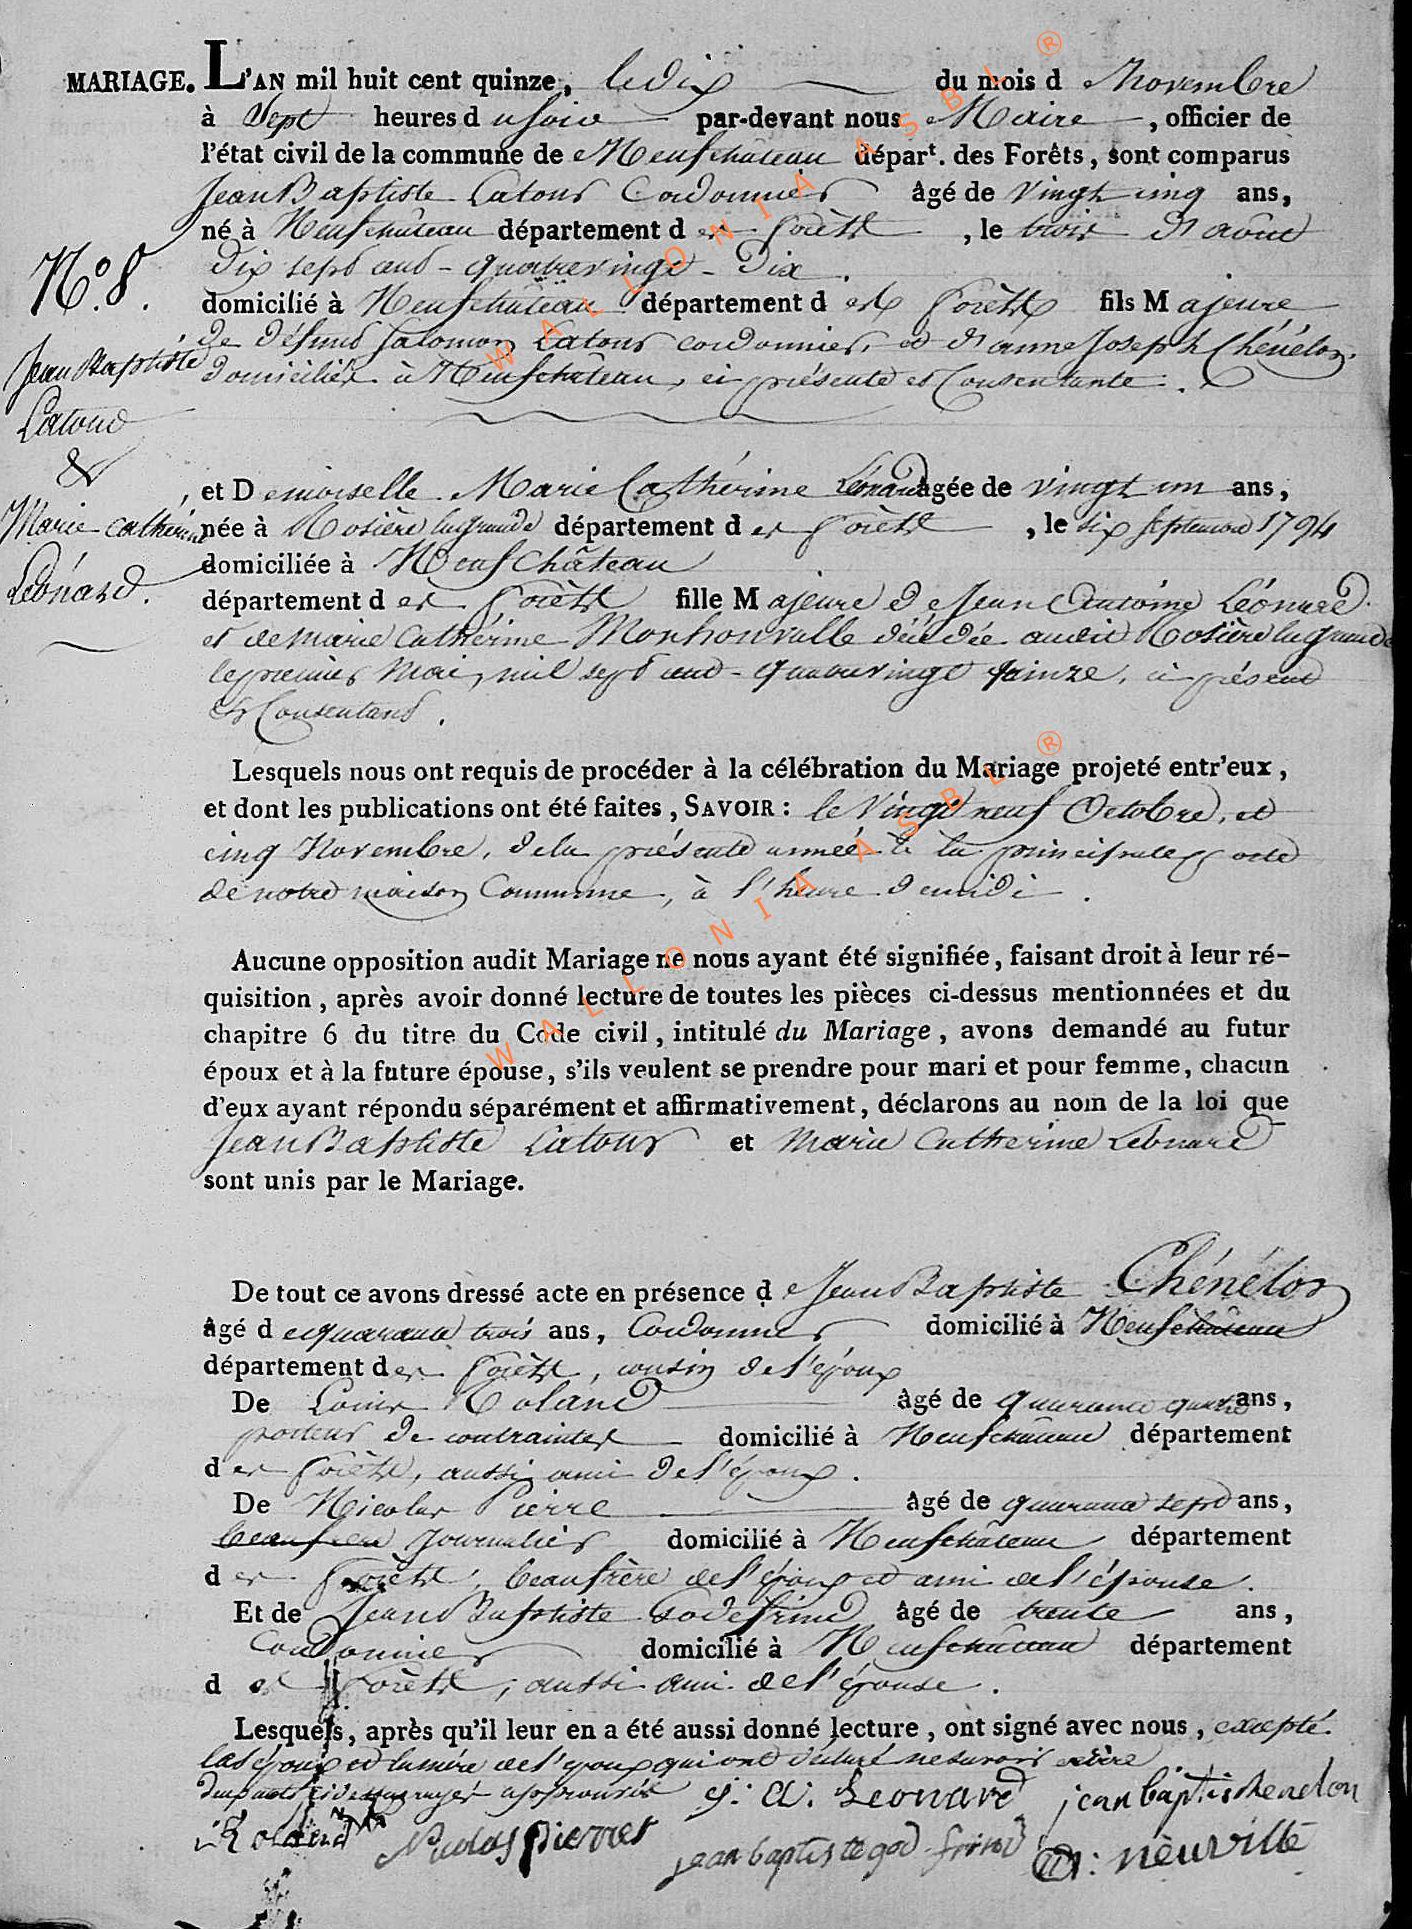 MARIAGE. L'AN mil huit cent quinze, le dix du mois d Novembre
à Sept heures d u soir par-devant nous Maire, officier de
l'état civil de la commune de Neufchâteau départ. des Forêts, sont comparus
Jean Baptiste Latour Cordonnier âgé de vingt cinq ans,
né à Neufchâteau département d es Forêts, le trois d'août
dix sept cent quatrevingt-dix.
N.° 8.
domicilié à Neufchâteau département d es Forêts fils M ajeure
de défunt Salomon Latour cordonnier, et d'anne Joseph Chénélon,
domiciliée à Neufchâteau, ci présente et Consentante.
Jean Baptiste
Latour
&
Marie Catherine
Léonard.
et D emoiselle Marie Cathérine Léonard agée de vingt un ans,
née à Rosière la grande département d es Forêts, le six septembre 1794
domiciliée à Neufchâteau
département d es Forêts fille M ajeure de Jean Antoine Léonard
et de Marie Cathérine Monhonvalle décédée audit Rosière la grande
le premier Mai, mil sept cent quatrevingt quinze, ci présent
et Consentant.
Lesquels nous ont requis de procéder à la célébration du Mariage projeté entr'eux,
et dont les publications ont été faites, SAVOIR: le Vingt neuf Octobre, et
cinq Novembre, de la présente année à la principale porte
de notre maison Commune, à l'heure de midi.
Aucune opposition audit Mariage ne nous ayant été signifiée, faisant droit à leur ré-
quisition, après avoir donné lecture de toutes les pièces ci-dessus mentionnées et du
chapitre 6 du titre du Code civil, intitulé du Mariage, avons demandé au futur
époux et à la future épouse, s'ils veulent se prendre pour mari et pour femme, chacun
d'eux ayant répondu séparément et affirmativement, déclarons au nom de la loi que
Jean Baptiste Latour et Marie Catherine Léonard
sont unis par le Mariage.
De tout ce avons dressé acte en présence d e Jean Baptiste Chénélon
âgé d e quarante trois ans, Cordonnier domicilié à Neufchâteau
département d es Forêts, cousin de l'époux
De Louis Roland âgé de quarante quatre ans,
porteur de contraintes domicilié à Neufchâteau département
d es Forêts, aussi ami de l'époux.
De Nicolas Pierre âgé de quarante sept ans,
beaufrere journalier domicilié à Neufchâteau département
d es Forêts, beaufrère de l'époux et ami de l'épouse.
Et de Jean Baptiste Godefrind âgé de trente ans,
Cordonnier domicilié à Neufchâteau département
d es Forêts, aussi ami de l'épouse.
Lesquels, après qu'il leur en a été aussi donné lecture, ont signé avec nous, excepté
les époux et la mère de l'époux qui ont déclaré ne savoir écrire
ci dessus rayés approuvés j: a: Leonard jean baptiste chenelon
Roland Nicolas pierret jean baptiste godfrind neuville
WALLONIA ASBL ®
WALLONIA ASBL ®